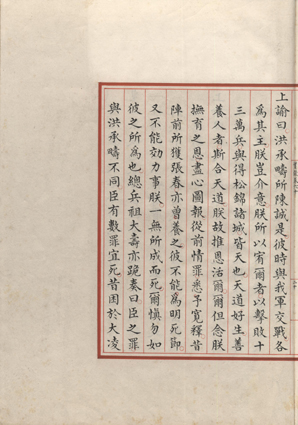 上諭曰洪承疇所陳誠是彼時與我軍交戰各
為其主朕豈介意朕所以宥爾者以擊敗十
三萬兵與得松錦諸城皆天也天道好生善
養人者斯合天道朕故推恩活爾爾但念朕
撫育之恩盡心圖報從前情罪悉予寬釋昔
陣前所獲張春亦曾養之彼不能為明死節
又不能効力事朕一無所成而死爾慎勿如
彼之所為也總兵祖大壽亦跪奏曰臣之罪
與洪承疇不同臣有數罪宜死昔困於大凌